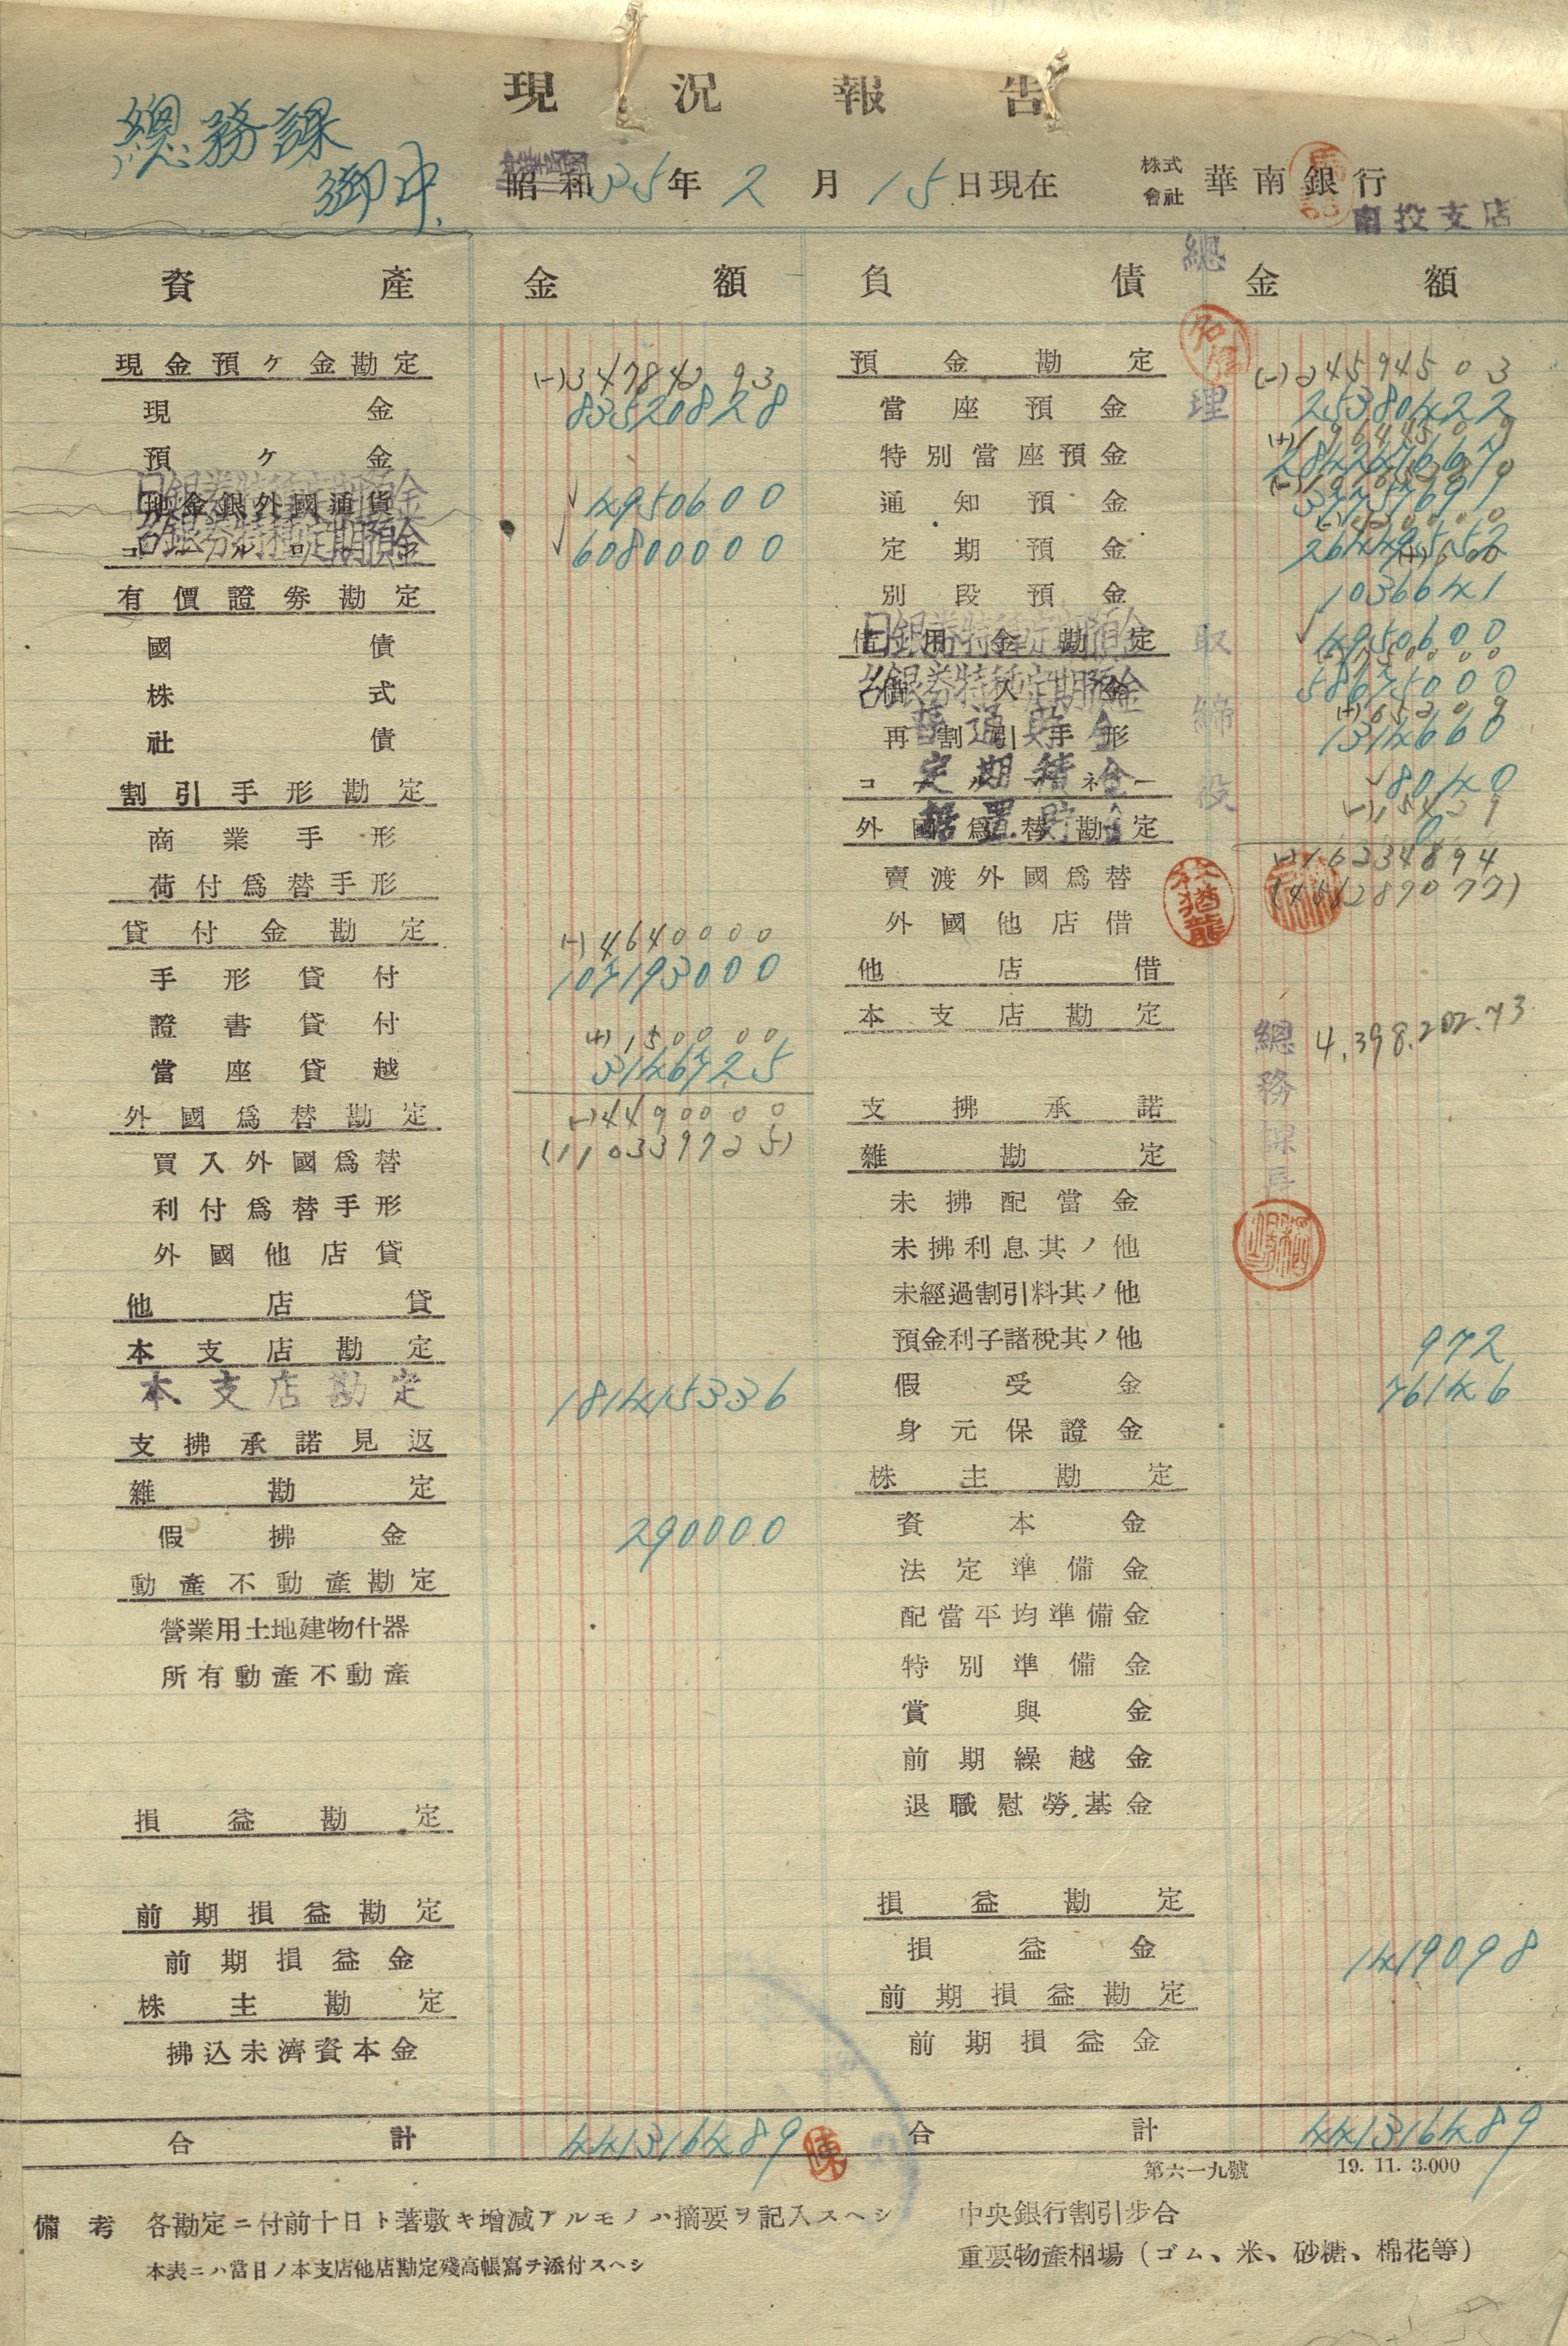 現況報告
總務課
御中
昭和35年2月15日現在
株式會社 華南銀行
南投支店
資產 金額 負債 金額
現金預ケ金勘定 (-)347842 93
現金 83520828
預ケ金
地金銀外國通貨
日銀券特種定期預金 4950600
台銀券特種定期預金 60800000
有價證券勘定
國債
株式
社債
割引手形勘定
商業手形
荷付爲替手形
貸付金勘定 (-)4640000
手形貸付 107193000
證書貸付 (+)150000
當座貸越 3146725
(-)4490000
外國爲替勘定 (110339725)
買入外國爲替
利付爲替手形
外國他店貸
他店貸
本支店勘定
本支店勘定 181415336
支拂承諾見返
雜勘定
假拂金 290000
動產不動產勘定
營業用土地建物什器
所有動產不動產
損益勘定
前期損益勘定
前期損益金
株主勘定
拂込未濟資本金
合計 441316489
陳
預金勘定 (-)24594503
當座預金 25380422
特別當座預金
通知預金
定期預金
別段預金 1036641
借用金勘定
日銀券特種定期預金 4950600
借入金
台銀券特種定期預金 58675000
再割引手形
普通貯金 (+)65209
1314660
定期積金 8040
据置貯金 (-)15429
0
外國爲替勘定 (-)16234894
賣渡外國爲替
外國他店借
他店借
本支店勘定 4,398,202.73
支拂承諾
雜勘定
未拂配當金
未拂利息其ノ他
未經過割引料其ノ他
預金利子諸稅其ノ他 972
假受金 76146
身元保證金
株主勘定
資本金
法定準備金
配當平均準備金
特別準備金
賞與金
前期繰越金
退職慰勞基金
損益勘定
損益金 1419098
前期損益勘定
前期損益金
合計 441316489
總理
取締役
林猶龍
總務課長
第六一九號 19. 11. 3.000
備考 各勘定ニ付前十日ト著敷キ增減アルモノハ摘要ヲ記入スヘシ
本表ニハ當日ノ本支店他店勘定殘高帳寫ヲ添付スヘシ
中央銀行割引步合
重要物產相場(ゴム、米、砂糖、棉花等)